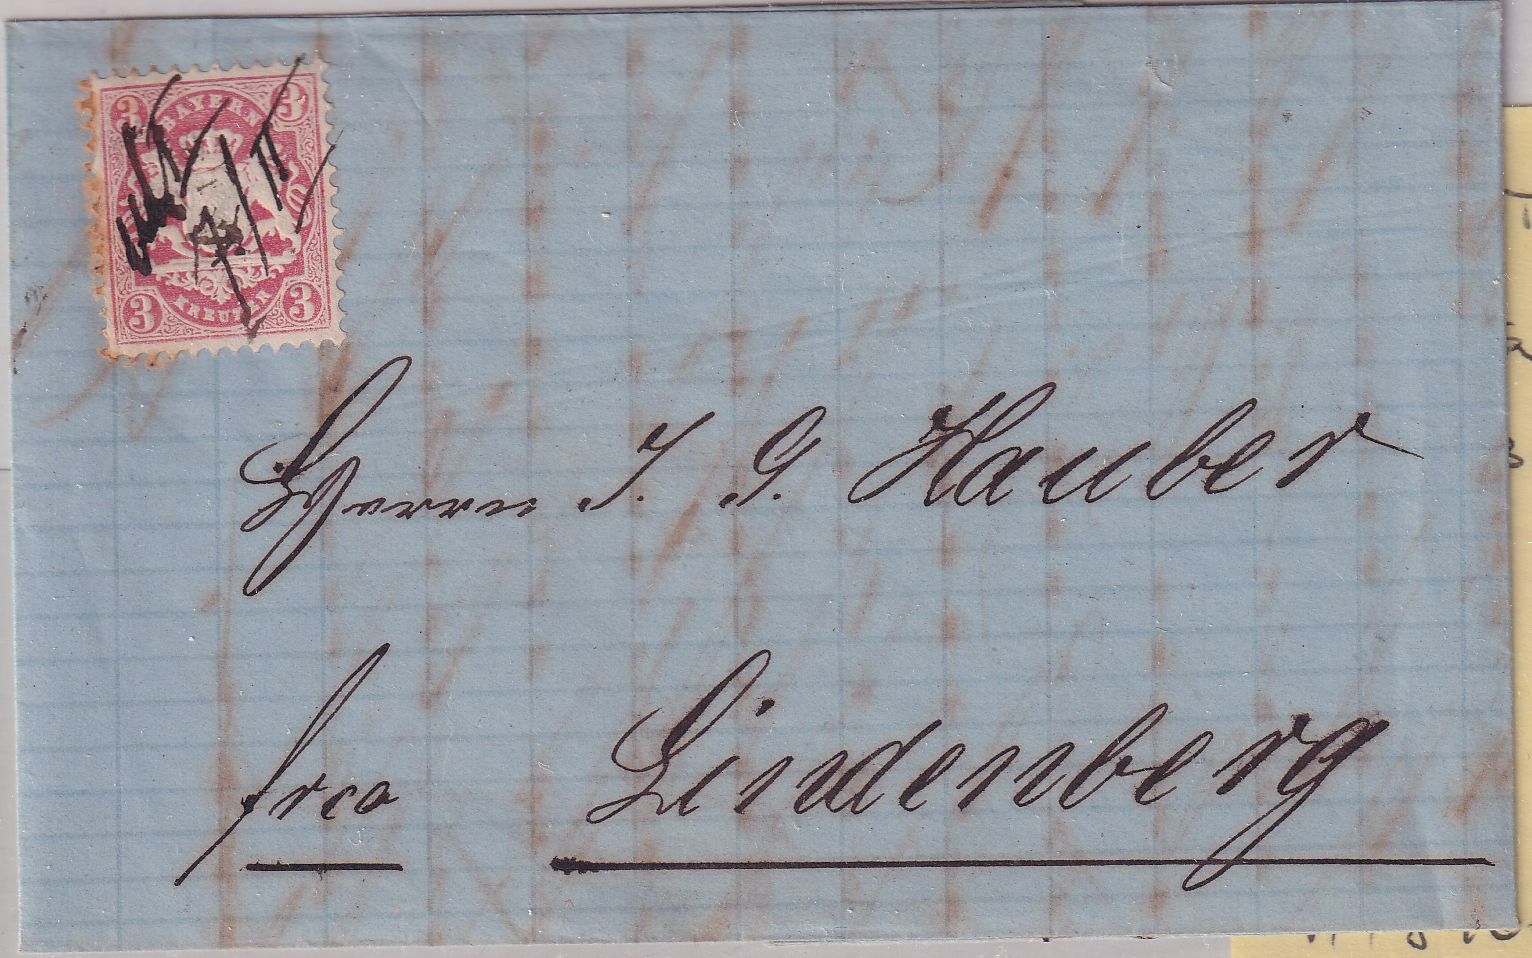 3 BAYERN 3
3 KREUZER 3
Herrn J. G. Hauber
frco Lindenberg